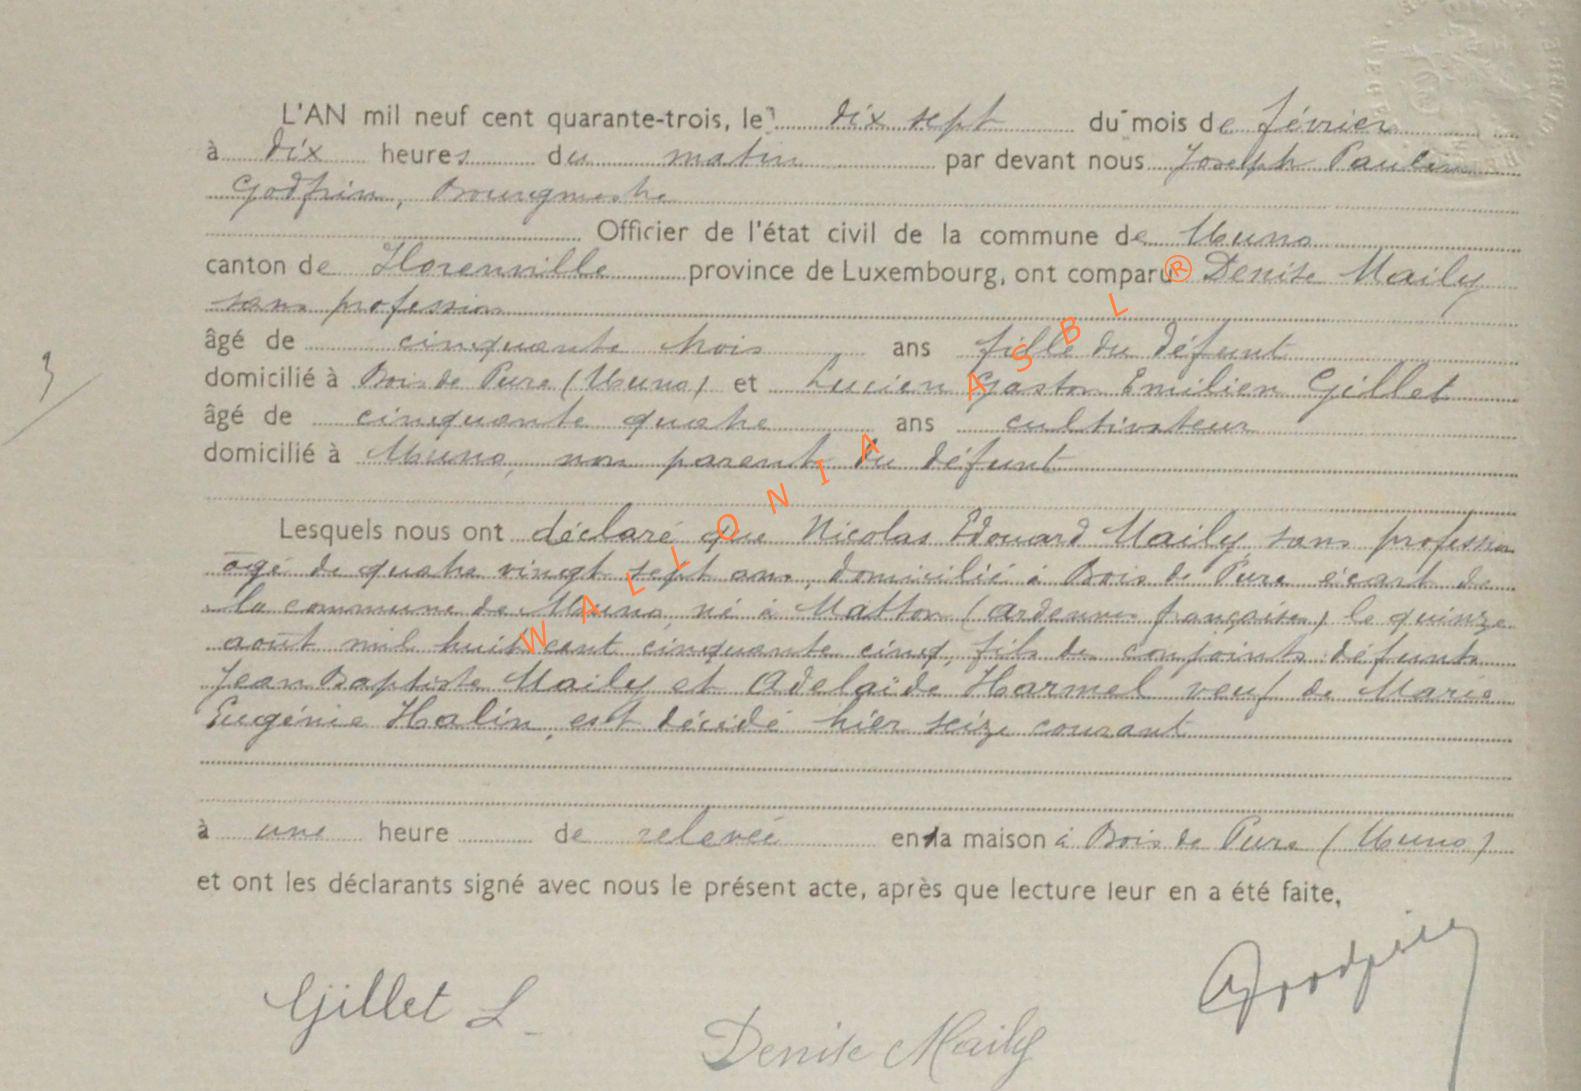 L'AN mil neuf cent quarante-trois, le dix sept du mois de février
à dix heures du matin par devant nous Joseph Paulin
Godfrin, Bourgmestre
Officier de l'état civil de la commune de Muno
canton de Florenville province de Luxembourg, ont comparu Denise Maily
sans profession
âgé de cinquante trois ans fille du défunt
domicilié à Bois de Pure (Muno) et Lucien Gaston Emilien Gillet
âgé de cinquante quatre ans cultivateur
domicilié à Muno, non parent du défunt
Lesquels nous ont déclaré que Nicolas Edouard Maily, sans profession
âgé de quatre vingt sept ans, domicilié à Bois de Pure écart de
la commune de Muno, né à Matton (ardennes françaises) le quinze
août mil huit cent cinquante cinq, fils des conjoints défunts
Jean Baptiste Maily et Adelaïde Harmel veuf de Marie
Eugénie Halin, est décédé hier seize courant
à une heure de relevée en la maison à Bois de Pure (Muno)
et ont les déclarants signé avec nous le présent acte, après que lecture leur en a été faite,
Gillet L.
Denise Maily
Godfrin
3/
WALLONIA ASBL ®